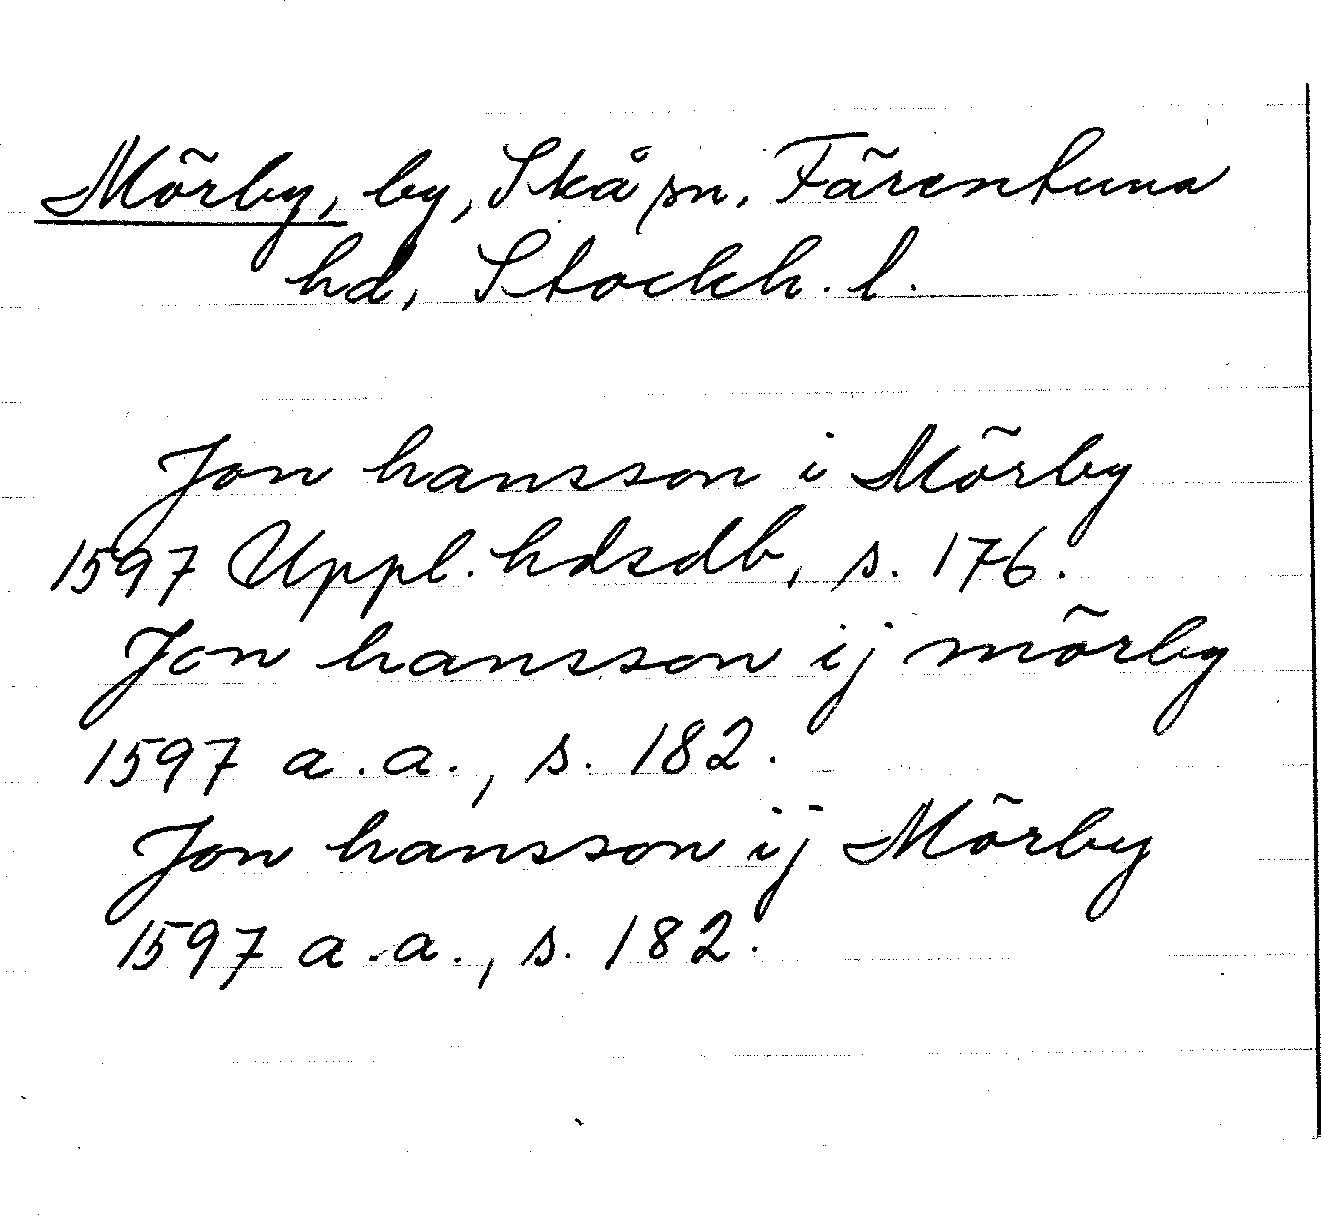 Mörby, by, Skå sn. Färentuna
hd, Stockh. l.
Jon hansson i Mörby
1597 Uppl. hdsdb, s. 176.
Jon hansson ij mörby
1597 a.a., s. 182.
Jon hansson ij Mörby
1597 a.a., s. 182.